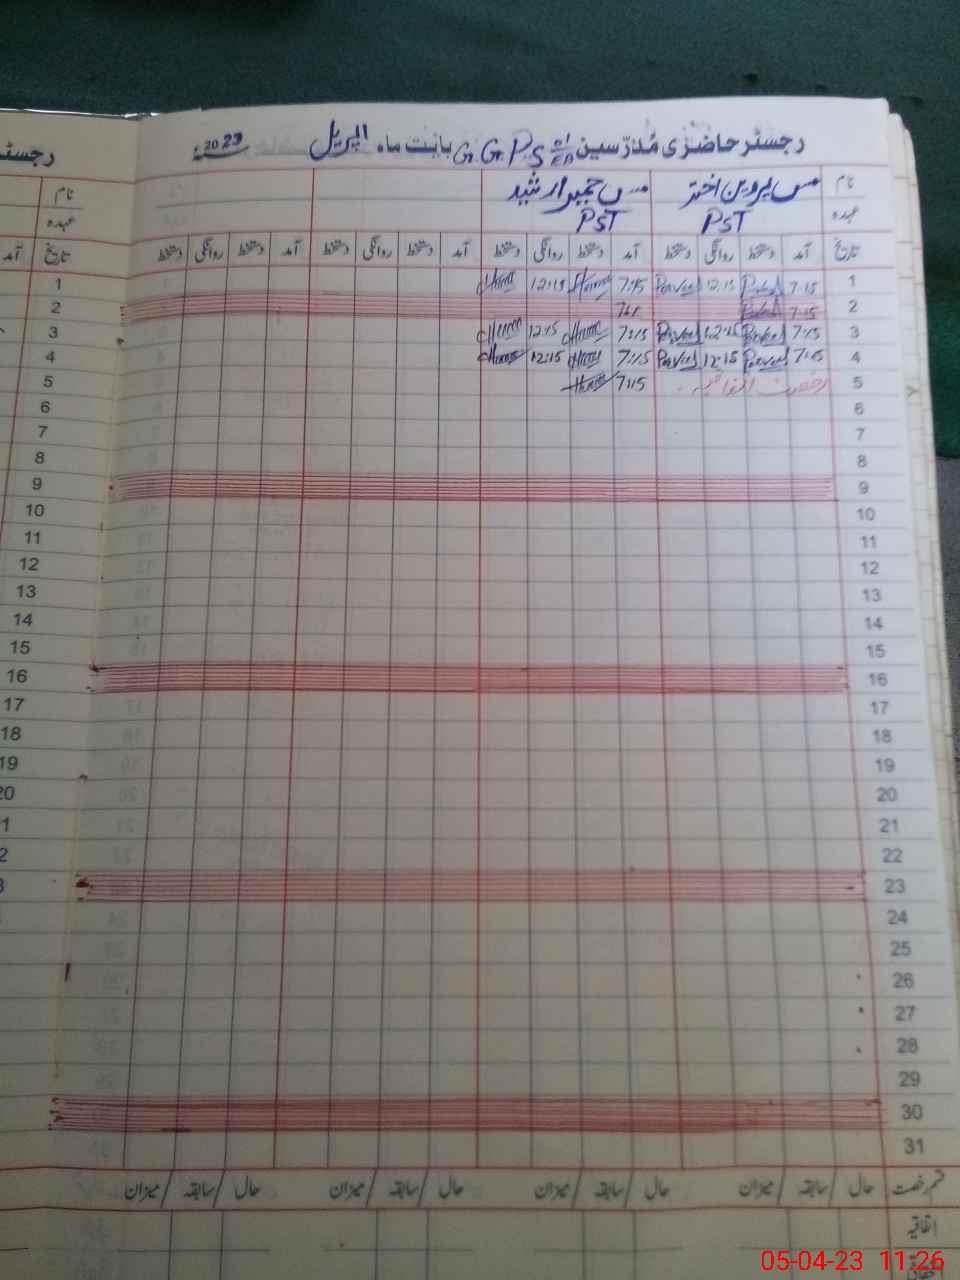 رجسٹر حاضری مُدرّسین G.G.P.S بابت ماہ اپریل 2023
نام مس پروین اختر مس حمیرا رشید
عہدہ PST PST
تاریخ آمد دستخط روانگی دستخط آمد دستخط روانگی دستخط آمد دستخط روانگی دستخط آمد دستخط روانگی دستخط
1 7:15 Parveen 12:15 Parveen 7:15 12:15
2 7:15
3 7:15 Parveen 12:15 Parveen 7:15 12:15
4 7:15 Parveen 12:15 Parveen 7:15 12:15
5 رخصت اتفاقیہ 7:15
6
7
8
9
10
11
12
13
14
15
16
17
18
19
20
21
22
23
24
25
26
27
28
29
30
31
قسم رخصت حال / سابقہ / میزان حال / سابقہ / میزان حال / سابقہ / میزان حال / سابقہ / میزان
اتفاقیہ
رجسٹر
نام
عہدہ
تاریخ آمد
1
2
3
4
5
6
7
8
9
10
11
12
13
14
15
16
17
18
19
20
05-04-23 11:26